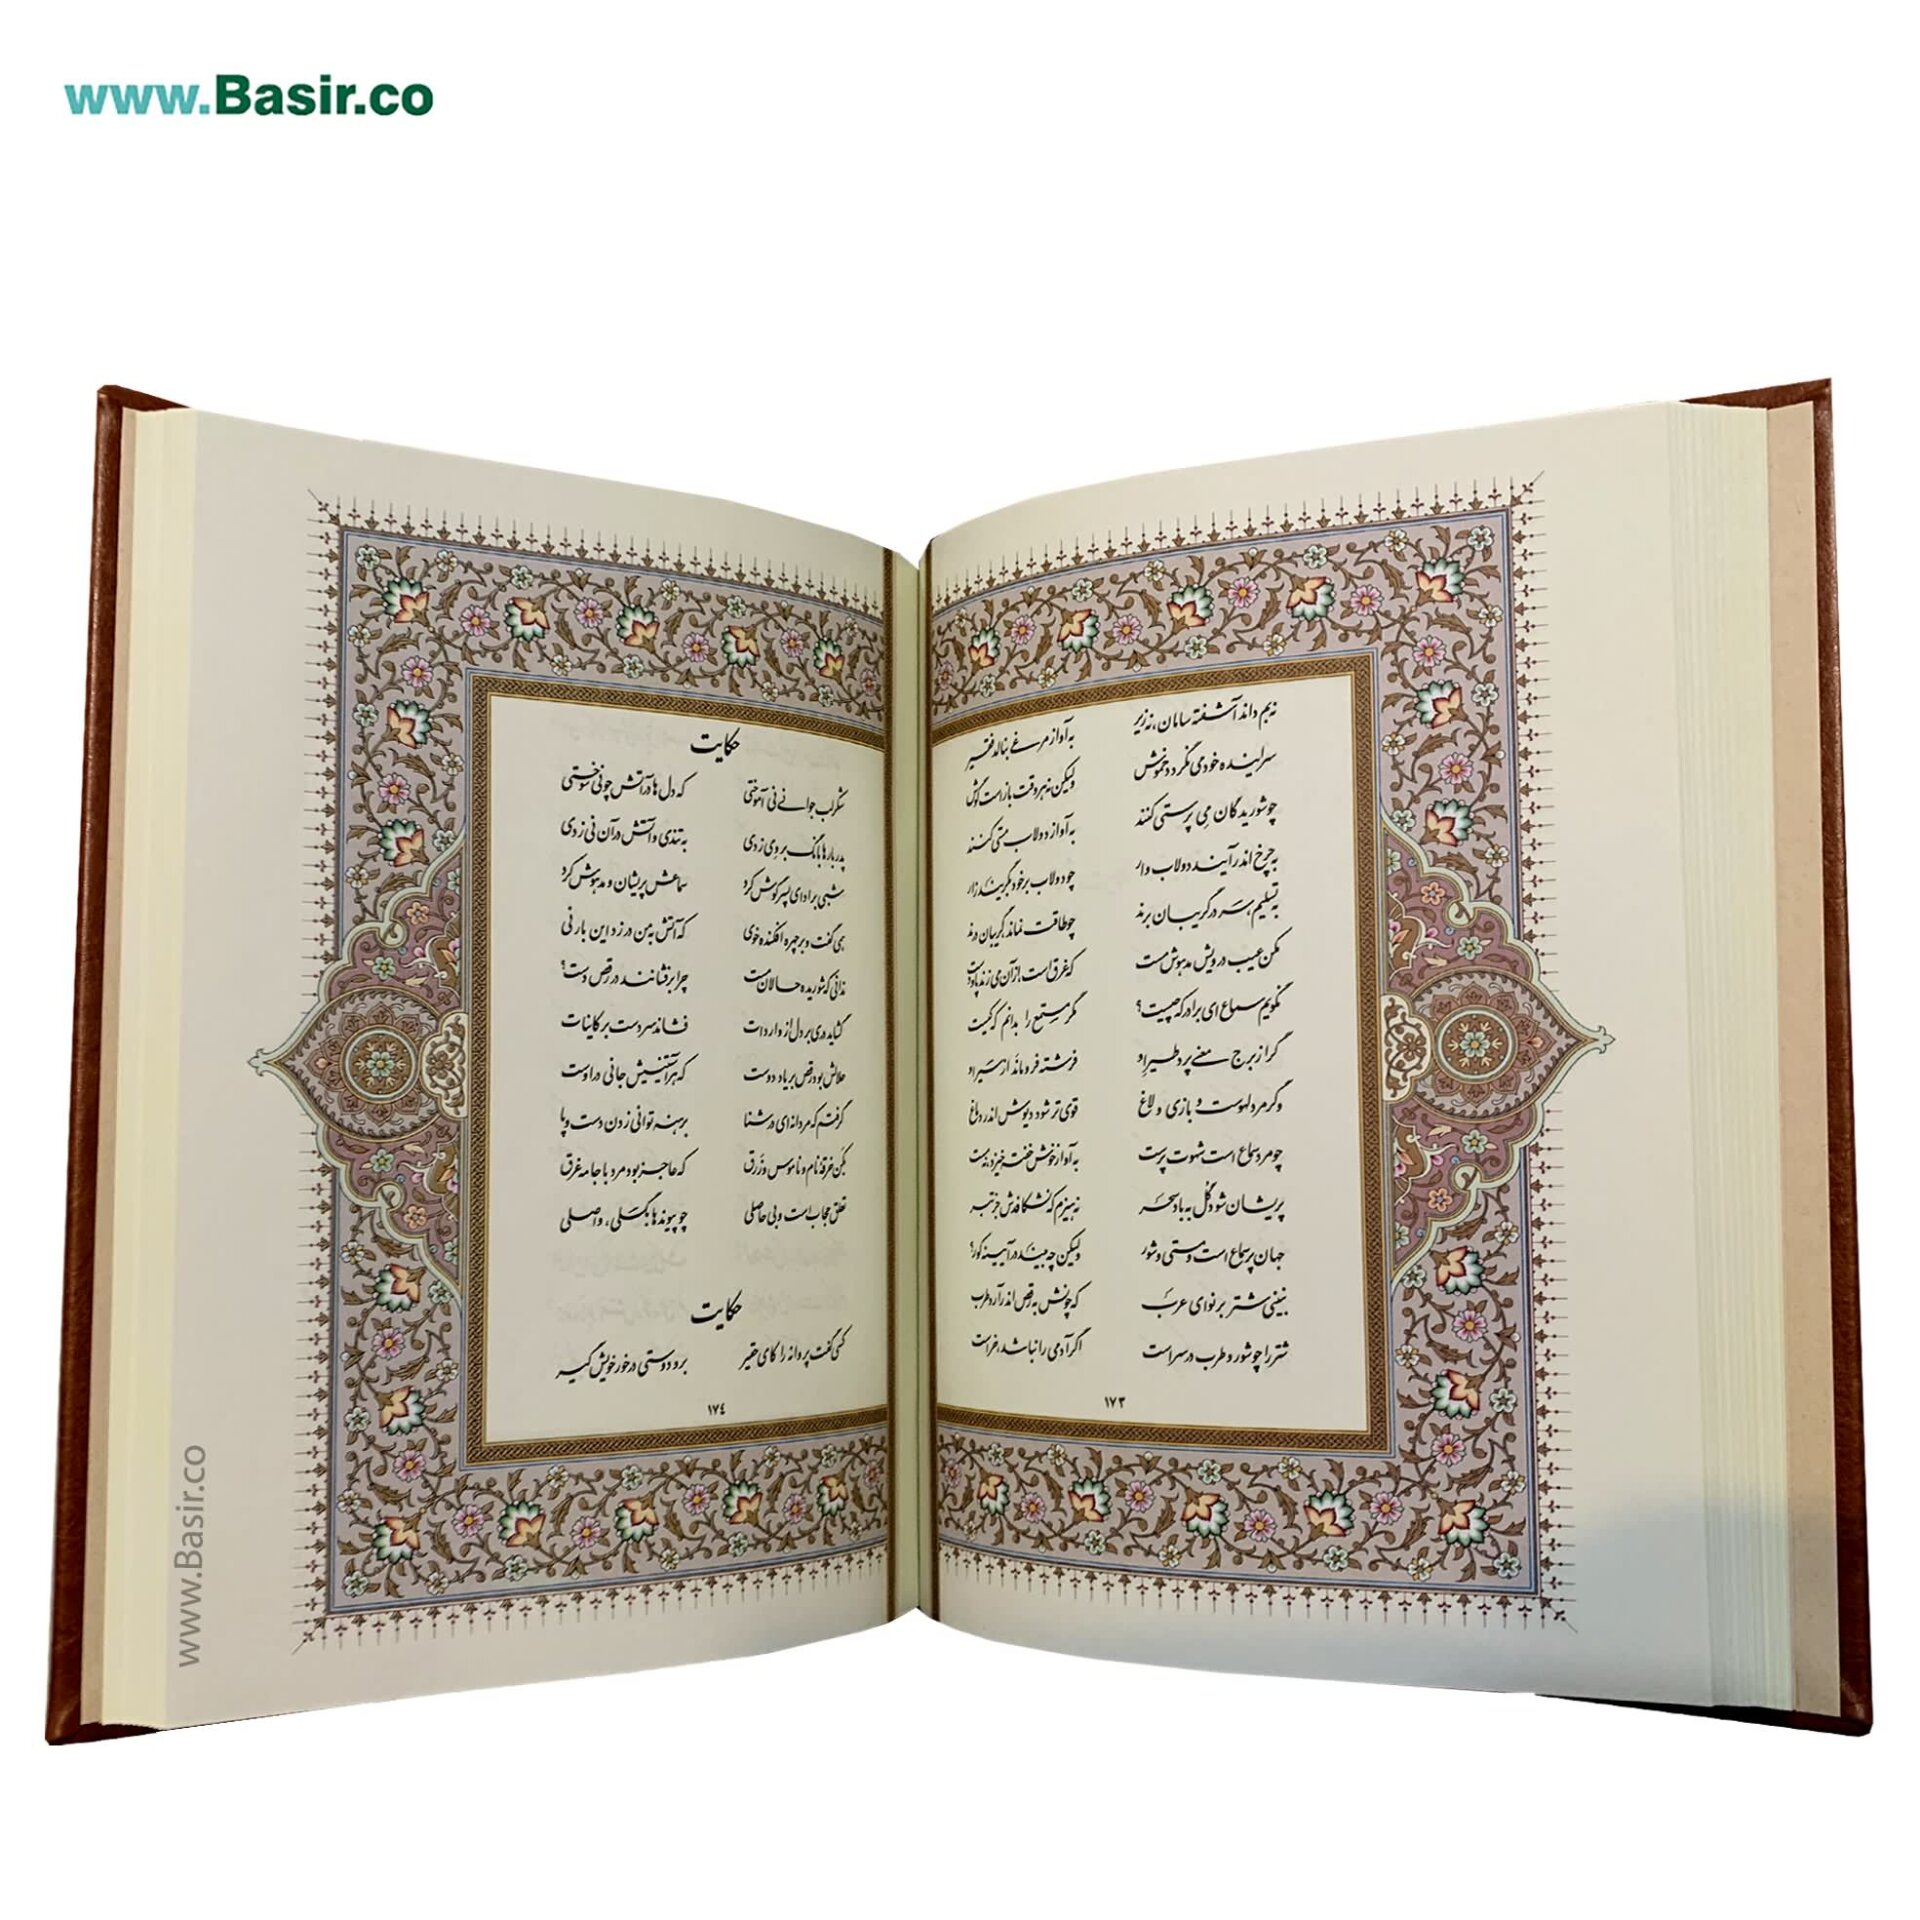 www.Basir.co
نه بم داند آشفته سامان، نه زیر به آواز مرغی بنالد فقیر
سراینده خود می نگردد خموش ولیکن نه هر وقت بازست گوش
چو شوریدگان می پرستی کنند به آواز دولاب مستی کنند
به چرخ اندر آیند دولاب وار چو دولاب بر خود بگریند زار
به تسلیم سر در گریبان برند چو طاقت نماند گریبان درند
مکن عیب درویش مدهوش مست که غرق است از آن می زند پا و دست
نگویم سماع ای برادر که چیست؟ مگر مستمع را بدانم که کیست
گر از برج معنی پرد طیر او فرشته فرو ماند از سیر او
وگر مرد لهوست و بازی و لاغ قوی تر شود دیوش اندر دماغ
چو مرد سماع است شهوت پرست به آواز خوش خفته خیزد، نه مست
پریشان شود گل به باد سحر نه هیزم که نشکافدش جز تبر
جهان پر سماع است و مستی و شور ولیکن چه بیند در آیینه کور؟
نبینی شتر بر نوای عرب که چونش به رقص اندر آرد طرب
شتر را چو شور و طرب در سر است اگر آدمی را نباشد، خر است
۱۷۳
حکایت
شکر لب جوانی نی آموختی که دل ها در آتش چو نی سوختی
پدر بارها بانگ بر وی زدی به تندی و آتش در آن نی زدی
شبی بر ادای پسر گوش کرد سماعش پریشان و مدهوش کرد
همی گفت و بر چهره افکنده خوی که آتش به من در زد این بار نی
ندانی که شوریده حالان مست چرا بر فشانند در رقص دست؟
گشاید دری بر دل از واردات فشاند سر دست بر کاینات
حلالش بود رقص بر یاد دوست که هر آستینیش جانی در اوست
گرفتم که مردانه ای در شنا برهنه توانی زدن دست و پا
بکن خرقه نام و ناموس و زرق که عاجز بود مرد با جامه غرق
تعلق حجاب است و بی حاصلی چو پیوندها بگسلی، واصلی
حکایت
کسی گفت پروانه را کای حقیر برو دوستی در خور خویش گیر
۱۷٤
www.Basir.co